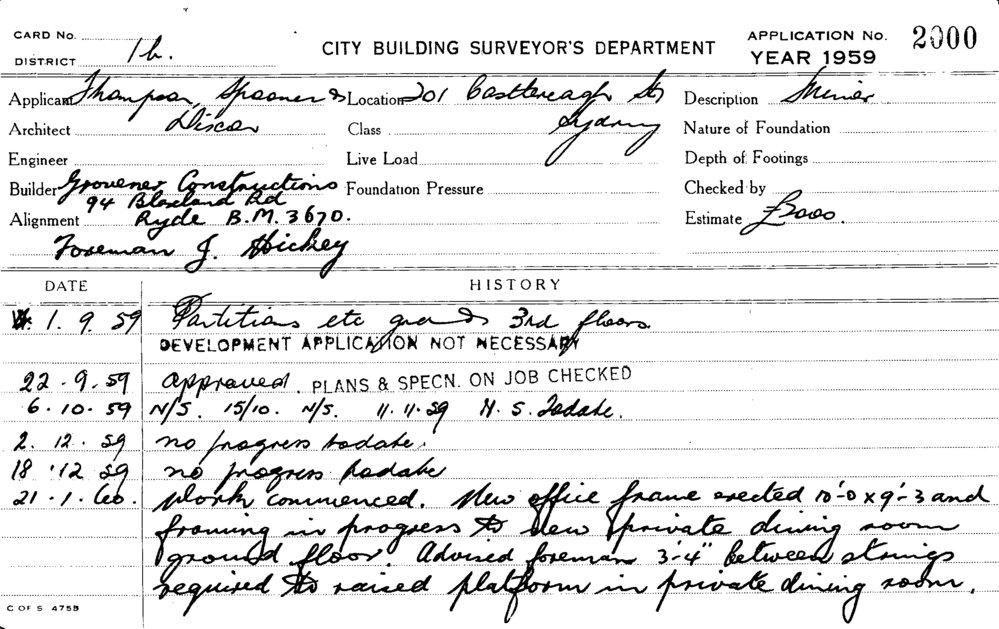 CARD No.
DISTRICT 1b.
CITY BUILDING SURVEYOR'S DEPARTMENT
APPLICATION No. 2000
YEAR 1959
Applicant Thompson, Spooner & Location 201 Castlereagh St Description Minor
Architect Dixon Class Sydney Nature of Foundation
Engineer Live Load Depth of Footings
Builder Grovener Constructions Foundation Pressure Checked by
94 Blaxland Rd
Alignment Ryde B.M. 3670. Estimate £3000.
Foreman J. Hickey
DATE HISTORY
1. 9. 59 Partitions etc grd & 3rd floors
DEVELOPMENT APPLICATION NOT NECESSARY
22. 9. 59 Approved. PLANS & SPECN. ON JOB CHECKED
6. 10. 59 N/S. 15/10. N/S. 11. 11. 59 N. S. Todate.
2. 12. 59 no progress todate.
18. 12 59 no progress todate
21. 1. 60. Work commenced. New office frame erected 10'-0 x 9'-3 and
framing in progress to new private dining room
ground floor. Advised foreman 3'-4" between strings
required to raised platform in private dining room.
C OF S 475B